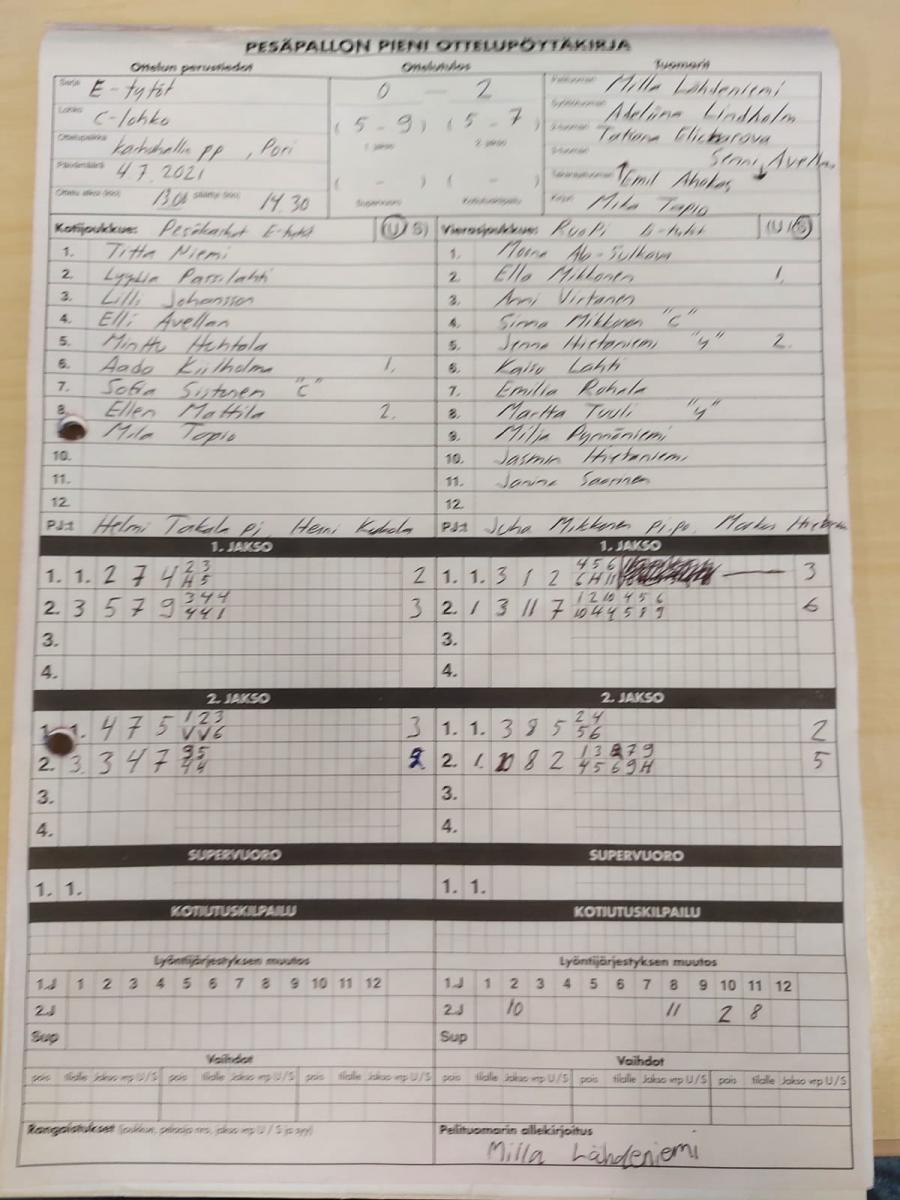 PESÄPALLON PIENI OTTELUPÖYTÄKIRJA
Ottelun perustiedot Ottelutulos Tuomarit
Sarja E-tytöt 0 — 2 Pelituomari Milla Lähdeniemi
Lohko C-lohko (5-9) (5-7) Adeliina Lindholm
1. jakso 2. jakso
Ottelupaikka pp, Pori Tatiana
Päivämäärä 4.7.2021 ( - ) ( - ) Senni Avellan
Emil Ahokas
Ottelu alkoi (klo) 13.00 päättyi (klo) 14.30 Supervuoro Kotiutuskilpailu Kirjuri Mila Tapio
Kotijoukkue: Pesäkarhut E-tytöt (U/S) Vierasjoukkue: RuoPi E-tytöt (U/S)
1. Titta Niemi 1. Moona Ala-Sulkava
2. Lyydia Parsilahti 2. Ella Mikkonen 1.
3. Lilli Johansson 3. Anni Virtanen
4. Elli Avellan 4. Sinna Mikkonen "C"
5. Minttu Huhtala 5. Jenna Hietaniemi "y" 2.
6. Aada Kiilholma 1. 6. Kaisu Lahti
7. Sofia Siitonen "C" 7. Emilia Rohula
8. Ellen Mattila 2. 8. Martta Tuuli "y"
Mila Tapio 9. Milja Pynnöniemi
10. 10. Jasmin Hietaniemi
11. 11. Janina Saarinen
12. 12.
PJ:t Helmi Takala pj, Henni PJ:t Juha Mikkonen pj.po, Markus
1. JAKSO 1. JAKSO
1. 1. 2 7 4 2 3 2 1. 1. 3 1 2 4 5 6 — 3
H 5 6 H 11
2. 3 5 7 9 3 4 4 3 2. 1 3 11 7 1 2 10 4 5 6 6
4 4 1 10 4 4 5 8 9
3. 3.
4. 4.
2. JAKSO 2. JAKSO
1. 4 7 5 1 2 3 3 1. 1. 3 8 5 2 4 2
V V 6 5 6
2. 3. 3 4 7 3 5 2 2. 1. 10 8 2 1 3 8 7 9 5
4 4 4 5 6 9 H
3. 3.
4. 4.
SUPERVUORO SUPERVUORO
1. 1. 1. 1.
KOTIUTUSKILPAILU KOTIUTUSKILPAILU
Lyöntijärjestyksen muutos Lyöntijärjestyksen muutos
1.J 1 2 3 4 5 6 7 8 9 10 11 12 1.J 1 2 3 4 5 6 7 8 9 10 11 12
2.J 2.J 10 11 2 8
Sup Sup
Vaihdot Vaihdot
pois tilalle Jakso vrp U/S pois tilalle Jakso vrp U/S pois tilalle Jakso vrp U/S pois tilalle Jakso vrp U/S pois tilalle Jakso vrp U/S pois tilalle Jakso vrp U/S
Rangaistukset (joukkue, pelaaja nro, jakso vrp U / S ja syy) Pelituomarin allekirjoitus
Milla Lähdeniemi